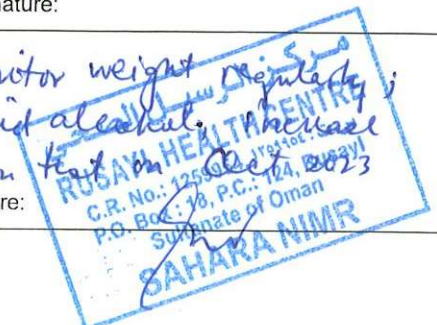 nature:
nitor weight regularly;
id alcohol, Increase
on Oct 2023
re:
RUSAYL HEALTH CENTRE
C.R. No.: 125
P.O. Box : 18, P.C.: 124, Rusayl
Sultanate of Oman
SAHARA NIMR